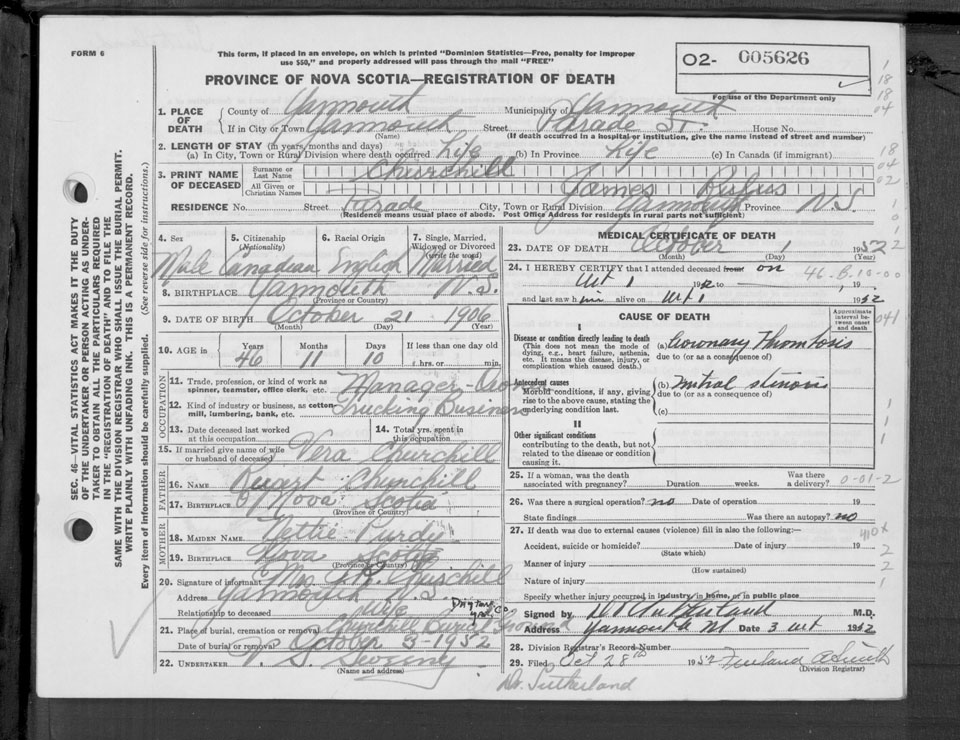 FORM 6
This form, if placed in an envelope, on which is printed "Dominion Statistics—Free, penalty for improper
use $50," and properly addressed will pass through the mail "FREE"
PROVINCE OF NOVA SCOTIA—REGISTRATION OF DEATH
O2- 005626
For use of the Department only
1. PLACE OF DEATH
County of Yarmouth Municipality of Yarmouth
If in City or Town Yarmouth Street Parade St. House No.
(Name) (If death occurred in a hospital or institution, give the name instead of street and number)
2. LENGTH OF STAY (in years, months and days)
(a) In City, Town or Rural Division where death occurred Life (b) In Province Life (c) In Canada (if immigrant)
3. PRINT NAME OF DECEASED
Surname or Last Name Churchill
All Given or Christian Names James Rufus
RESIDENCE No. Street Parade City, Town or Rural Division Yarmouth Province N.S.
(Residence means usual place of abode. Post Office Address for residents in rural parts not sufficient)
4. Sex 5. Citizenship (Nationality) 6. Racial Origin 7. Single, Married, Widowed or Divorced (write the word)
Male Canadian English Married
8. BIRTHPLACE Yarmouth N.S.
(Province or Country)
9. DATE OF BIRTH October 21 1906
(Month) (Day) (Year)
10. AGE in Years Months Days If less than one day old
46 11 10 hrs. or min.
OCCUPATION
11. Trade, profession, or kind of work as
spinner, teamster, office clerk, etc. Manager-
12. Kind of industry or business, as cotton
mill, lumbering, bank, etc. Trucking Business
13. Date deceased last worked
at this occupation
14. Total yrs. spent in
this occupation
15. If married give name of wife
or husband of deceased Vera Churchill
FATHER
16. NAME Churchill
17. BIRTHPLACE Nova Scotia
(Province or Country)
MOTHER
18. MAIDEN NAME Hattie Purdy
19. BIRTHPLACE Nova Scotia
(Province or Country)
20. Signature of informant Mrs. J.R. Churchill
Address Yarmouth N.S.
Relationship to deceased wife
21. Place of burial, cremation or removal Churchill Burial Ground
Date of burial or removal October 3-1952
22. UNDERTAKER V. S. Sweeny
(Name and address)
MEDICAL CERTIFICATE OF DEATH
23. DATE OF DEATH October 1 1952
(Month) (Day)
24. I HEREBY CERTIFY that I attended deceased from on
Oct 1 1952 to , 19
and last saw him alive on Oct 1 1952
46-8-10-00
CAUSE OF DEATH
Approximate interval between onset and death
041
I
Disease or condition directly leading to death
(This does not mean the mode of
dying, e.g., heart failure, asthenia,
etc. It means the disease, injury, or
complication which caused death.)
(a) Coronary Thrombosis
due to (or as a consequence of)
Antecedent causes
Morbid conditions, if any, giving
rise to the above cause, stating the
underlying condition last.
(b) Mitral stenosis
due to (or as a consequence of)
(c)
II
Other significant conditions
contributing to the death, but not
related to the disease or condition
causing it.
25. If a woman, was the death
associated with pregnancy? Duration weeks. Was there a delivery?
0-01-2
26. Was there a surgical operation? no Date of operation 19
State findings Was there an autopsy? no
27. If death was due to external causes (violence) fill in also the following:—
Accident, suicide or homicide? Date of injury 19
(State which)
Manner of injury
(How sustained)
Nature of injury
Specify whether injury occurred in industry, in home, or in public place
Signed by Sutherland M.D.
Address Yarmouth NS Date 3 Oct 1952
28. Division Registrar's Record Number
29. Filed Oct 28th 1952 Smith
(Division Registrar)
Dr. Sutherland
SEC. 46—VITAL STATISTICS ACT MAKES IT THE DUTY
OF THE UNDERTAKER OR PERSON ACTING AS UNDER-
TAKER TO OBTAIN ALL THE PARTICULARS REQUIRED
IN THE "REGISTRATION OF DEATH" AND TO FILE THE
SAME WITH THE DIVISION REGISTRAR WHO SHALL ISSUE THE BURIAL PERMIT.
WRITE PLAINLY WITH UNFADING INK. THIS IS A PERMANENT RECORD.
Every item of information should be carefully supplied. (See reverse side for instructions.)